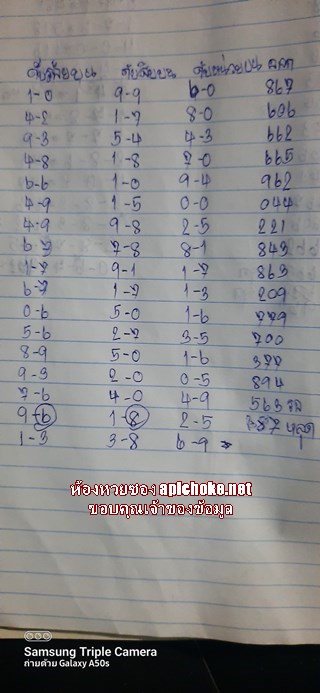 ดับร้อยบน ดับสิบบน ดับหน่วยบน ผล
1-0 9-9 6-0 867
4-8 1-7 8-0 696
9-3 5-4 4-3 662
4-8 1-8 7-0 665
6-6 1-0 9-4 962
4-9 1-5 0-0 044
4-9 9-8 2-5 221
6-7 7-8 8-1 843
1-7 9-1 1-7 863
6-7 1-7 1-3 209
0-6 5-0 1-6 779
5-6 2-7 3-5 700
8-9 5-0 1-6 377
9-3 2-0 0-5 894
7-6 4-0 4-9 563
9-6 1-8 2-5 387 หลุด
1-3 3-8 6-9
ห้องหวยซอง apichoke.net
ขอบคุณเจ้าของข้อมูล
Samsung Triple Camera
ถ่ายด้วย Galaxy A50s